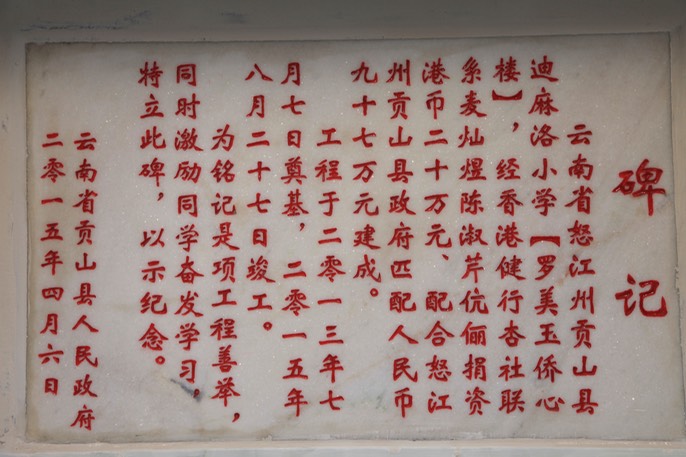 碑记
云南省怒江州贡山县
迪麻洛小学【罗美玉侨心
楼】，经香港健行杏社联
系麦灿煜陈淑芹伉俪捐资
港币二十万元、配合怒江
州贡山县政府匹配人民币
九十七万元建成。
工程于二零一三年七
月七日奠基，二零一五年
八月二十七日竣工。
为铭记是项工程善举，
同时激励同学奋发学习。
特立此碑，以示纪念。
云南省贡山县人民政府
二零一五年四月六日